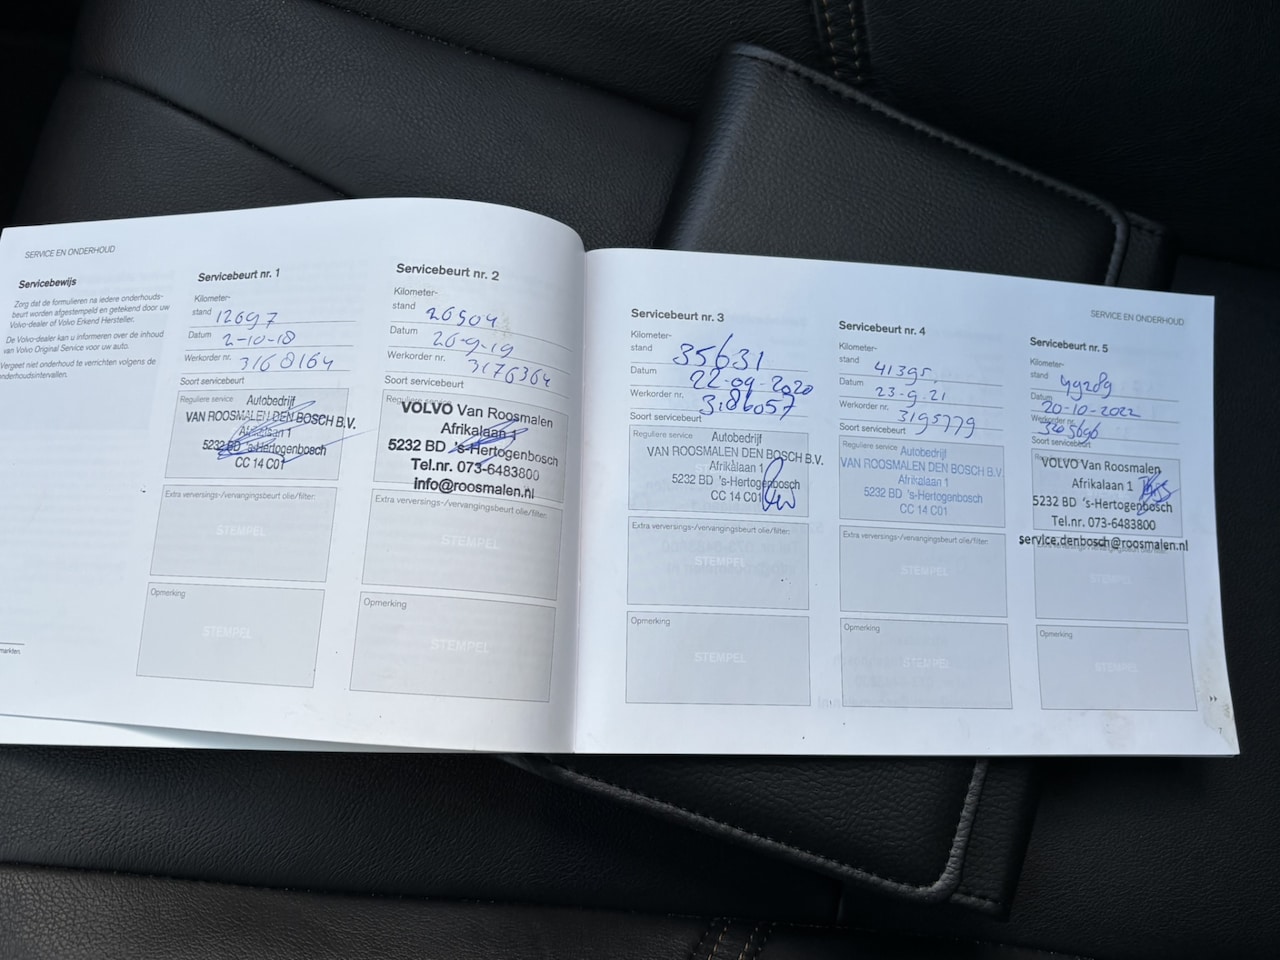 SERVICE EN ONDERHOUD
Servicebewijs
Zorg dat de formulieren na iedere onderhouds-
beurt worden afgestempeld en getekend door uw
Volvo-dealer of Volvo Erkend Hersteller.
De Volvo-dealer kan u informeren over de inhoud
van Volvo Original Service voor uw auto.
Vergeet niet onderhoud te verrichten volgens de
onderhoudsintervallen.
markten.
Servicebeurt nr. 1
Kilometer-
stand 12697
Datum 2-10-18
Werkorder nr. 3168164
Soort servicebeurt
Reguliere service
Autobedrijf
VAN ROOSMALEN DEN BOSCH B.V.
Afrikalaan 1
5232 BD 's-Hertogenbosch
CC 14 C01
Extra verversings-/vervangingsbeurt olie/filter:
STEMPEL
Opmerking
STEMPEL
Servicebeurt nr. 2
Kilometer-
stand 26504
Datum 26-9-19
Werkorder nr. 3176364
Soort servicebeurt
Reguliere service
VOLVO Van Roosmalen
Afrikalaan 1
5232 BD 's-Hertogenbosch
Tel.nr. 073-6483800
info@roosmalen.nl
Extra verversings-/vervangingsbeurt olie/filter:
STEMPEL
Opmerking
STEMPEL
Servicebeurt nr. 3
Kilometer-
stand 35631
Datum 22-09-2020
Werkorder nr. 3186057
Soort servicebeurt
Reguliere service
Autobedrijf
VAN ROOSMALEN DEN BOSCH B.V.
Afrikalaan 1
5232 BD 's-Hertogenbosch
CC 14 C01
Extra verversings-/vervangingsbeurt olie/filter:
STEMPEL
Opmerking
STEMPEL
Servicebeurt nr. 4
Kilometer-
stand 41395
Datum 23-9-21
Werkorder nr. 3195779
Soort servicebeurt
Reguliere service
Autobedrijf
VAN ROOSMALEN DEN BOSCH B.V.
Afrikalaan 1
5232 BD 's-Hertogenbosch
CC 14 C01
Extra verversings-/vervangingsbeurt olie/filter:
STEMPEL
Opmerking
STEMPEL
SERVICE EN ONDERHOUD
Servicebeurt nr. 5
Kilometer-
stand 49289
Datum 20-10-2022
Werkorder nr.
Soort servicebeurt
VOLVO Van Roosmalen
Afrikalaan 1
5232 BD 's-Hertogenbosch
Tel.nr. 073-6483800
service.denbosch@roosmalen.nl
STEMPEL
Opmerking
STEMPEL
7